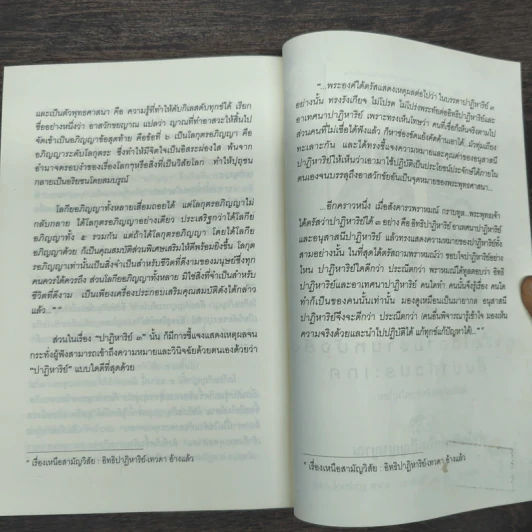 และเป็นตัวพุทธศาสนา คือ ความรู้ที่ทำให้ดับกิเลสดับทุกข์ได้ เรียก
ชื่ออย่างหนึ่งว่า อาสวักขยญาณ แปลว่า ญาณที่ทำอาสวะให้สิ้นไป
จัดเข้าเป็นอภิญญาข้อสุดท้าย คือข้อที่ ๖ เป็นโลกุตรอภิญญา คือ
อภิญญาระดับโลกุตระ ซึ่งทำให้มีจิตใจเป็นอิสระผ่องใส พ้นจาก
อำนาจครอบงำของเรื่องโลกๆหรือสิ่งที่เป็นวิสัยโลก ทำให้ปุถุชน
กลายเป็นอริยชนโดยสมบูรณ์
โลกียอภิญญาทั้งหลายเสื่อมถอยได้ แต่โลกุตรอภิญญาไม่
กลับกลาย ได้โลกุตรอภิญญาอย่างเดียว ประเสริฐกว่าได้โลกีย
อภิญญาทั้ง ๕ รวมกัน แต่ถ้าได้โลกุตรอภิญญา โดยได้โลกีย
อภิญญาด้วย ก็เป็นคุณสมบัติส่วนพิเศษเสริมให้ดีพร้อมยิ่งขึ้น โลกุ
ตรอภิญญาเท่านั้นเป็นสิ่งจำเป็นสำหรับชีวิตที่ดีงามของมนุษย์ซึ่งทุก
คนควรได้ควรถึง ส่วนโลกียอภิญญาทั้งหลาย มิใช่สิ่งที่จำเป็นสำหรับ
ชีวิตที่ดีงาม เป็นเพียงเครื่องประกอบเสริมคุณสมบัติดังได้กล่าว
แล้ว..."*
ส่วนในเรื่อง "ปาฏิหาริย์ ๓" นั้น ก็มีการชี้แจงแสดงเหตุผลจน
กระทั่งผู้ฟังสามารถเข้าถึงความหมายและวินิจฉัยด้วยตนเองด้วยว่า
"ปาฏิหาริย์" แบบใดดีที่สุดด้วย
* เรื่องเหนือสามัญวิสัย : อิทธิปาฏิหาริย์-เทวดา อ้างแล้ว
"...พระองค์ได้ตรัสแสดงเหตุผลต่อไปว่า ในบรรดาปาฏิหาริย์ ๓
อย่างนั้น ทรงรังเกียจ ไม่โปรด ไม่โปร่งพระทัยต่ออิทธิปาฏิหาริย์และ
อาเทศนาปาฏิหาริย์ เพราะทรงเห็นโทษว่า คนที่เชื่อก็เห็นจริงตามไป
ส่วนคนที่ไม่เชื่อได้ฟังแล้ว ก็หาช่องขัดแย้งคัดค้านเอาได้...มัวทุ่มเถียง
ทะเลาะกัน และได้ทรงชี้แจงความหมายและคุณค่าของอนุสาสนี
ปาฏิหาริย์ให้เห็นว่าเอามาใช้ปฏิบัติเป็นประโยชน์ประจักษ์ได้ภายใน
ตนเองจนบรรลุถึงอาสวักขัยอันเป็นจุดหมายของพระพุทธศาสนา...
...อีกคราวหนึ่ง เมื่อสังคารวพราหมณ์ กราบทูล...พระพุทธเจ้า
ได้ตรัสว่าปาฏิหาริย์ได้ ๓ อย่าง คือ อิทธิปาฏิหาริย์ อาเทศนาปาฏิหาริย์
และอนุสาสนีปาฏิหาริย์ แล้วทรงแสดงความหมายของปาฏิหาริย์ทั้ง
สามอย่างนั้น ในที่สุดได้ตรัสถามพราหมณ์ว่า ชอบใจปาฏิหาริย์อย่าง
ไหน ปาฏิหาริย์ใดดีกว่า ประณีตกว่า พราหมณ์ได้ทูลตอบว่า อิทธิ
ปาฏิหาริย์และอาเทศนาปาฏิหาริย์ คนใดทำ คนนั้นจึงรู้เรื่อง คนใด
ทำก็เป็นของคนนั้นเท่านั้น มองดูเหมือนเป็นมายากล อนุสาสนี
ปาฏิหาริย์จึงจะดีกว่า ประณีตกว่า คนอื่นพิจารณารู้เข้าใจ มองเห็น
ความจริงด้วยและนำไปปฏิบัติได้ แก้ทุกข์แก้ปัญหาได้..."*
* เรื่องเหนือสามัญวิสัย : อิทธิปาฏิหาริย์-เทวดา อ้างแล้ว